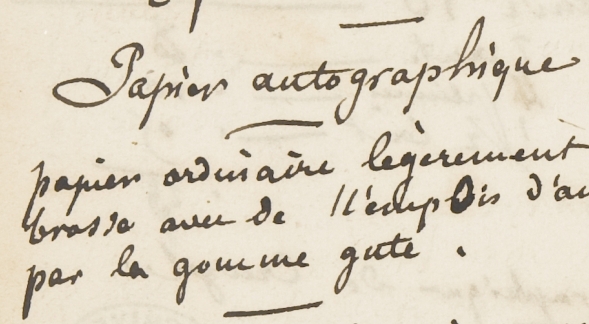 Papier autographique
papier ordinaire légèrement
brosse avec de l'empois d'am
par la gomme gute.